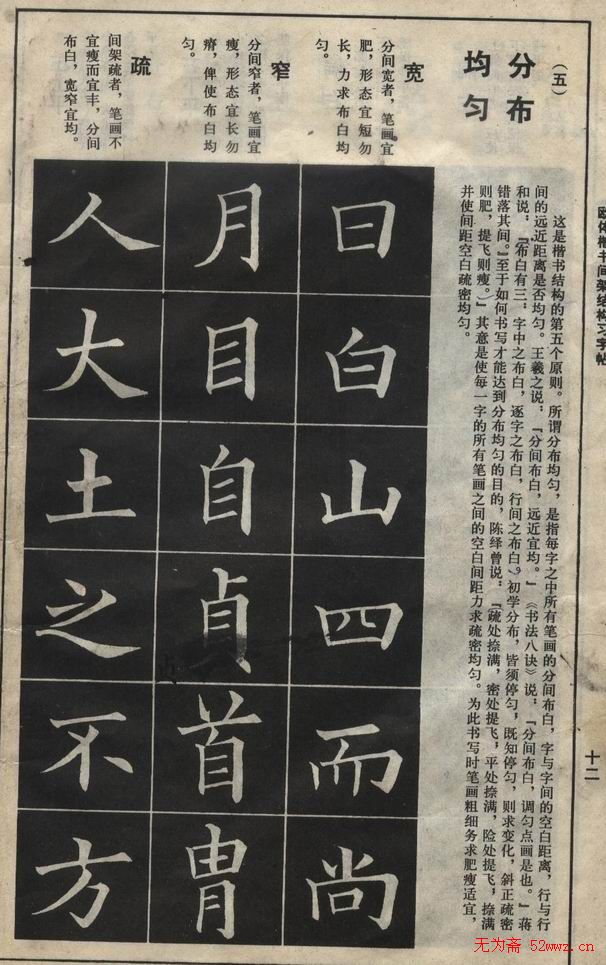 欧体楷书间架结构习字帖
十二
（五）
分布
均匀
这是楷书结构的第五个原则。所谓分布均匀，是指每字之中所有笔画的分间布白，字与字间的空白距离，行与行
间的远近距离是否均匀。王羲之说：『分间布白，远近宜均。』《书法八诀》说：『分间布白，调匀点画是也。』蒋
和说：『布白有三：字中之布白，逐字之布白，行间之布白。初学分布，皆须停匀，既知停匀，则求变化，斜正疏密
错落其间。』至于如何书写才能达到分布均匀的目的，陈绎曾说：『疏处捺满，密处提飞，平处捺满，险处提飞，捺满
则肥，提飞则瘦。』其意是使每一字的所有笔画之间的空白间距力求疏密均匀。为此书写时笔画粗细务求肥瘦适宜，
并使间距空白疏密均匀。
宽
分间宽者，笔画宜
肥，形态宜短勿
长，力求布白均
匀。
窄
分间窄者，笔画宜
瘦，形态宜长勿
瘠，俾使布白均
匀。
疏
间架疏者，笔画不
宜瘦而宜丰，分间
布白，宽窄宜均。
曰白山四而尚
月目自贞首胄
人大土之不方
无为斋 52wwz.cn